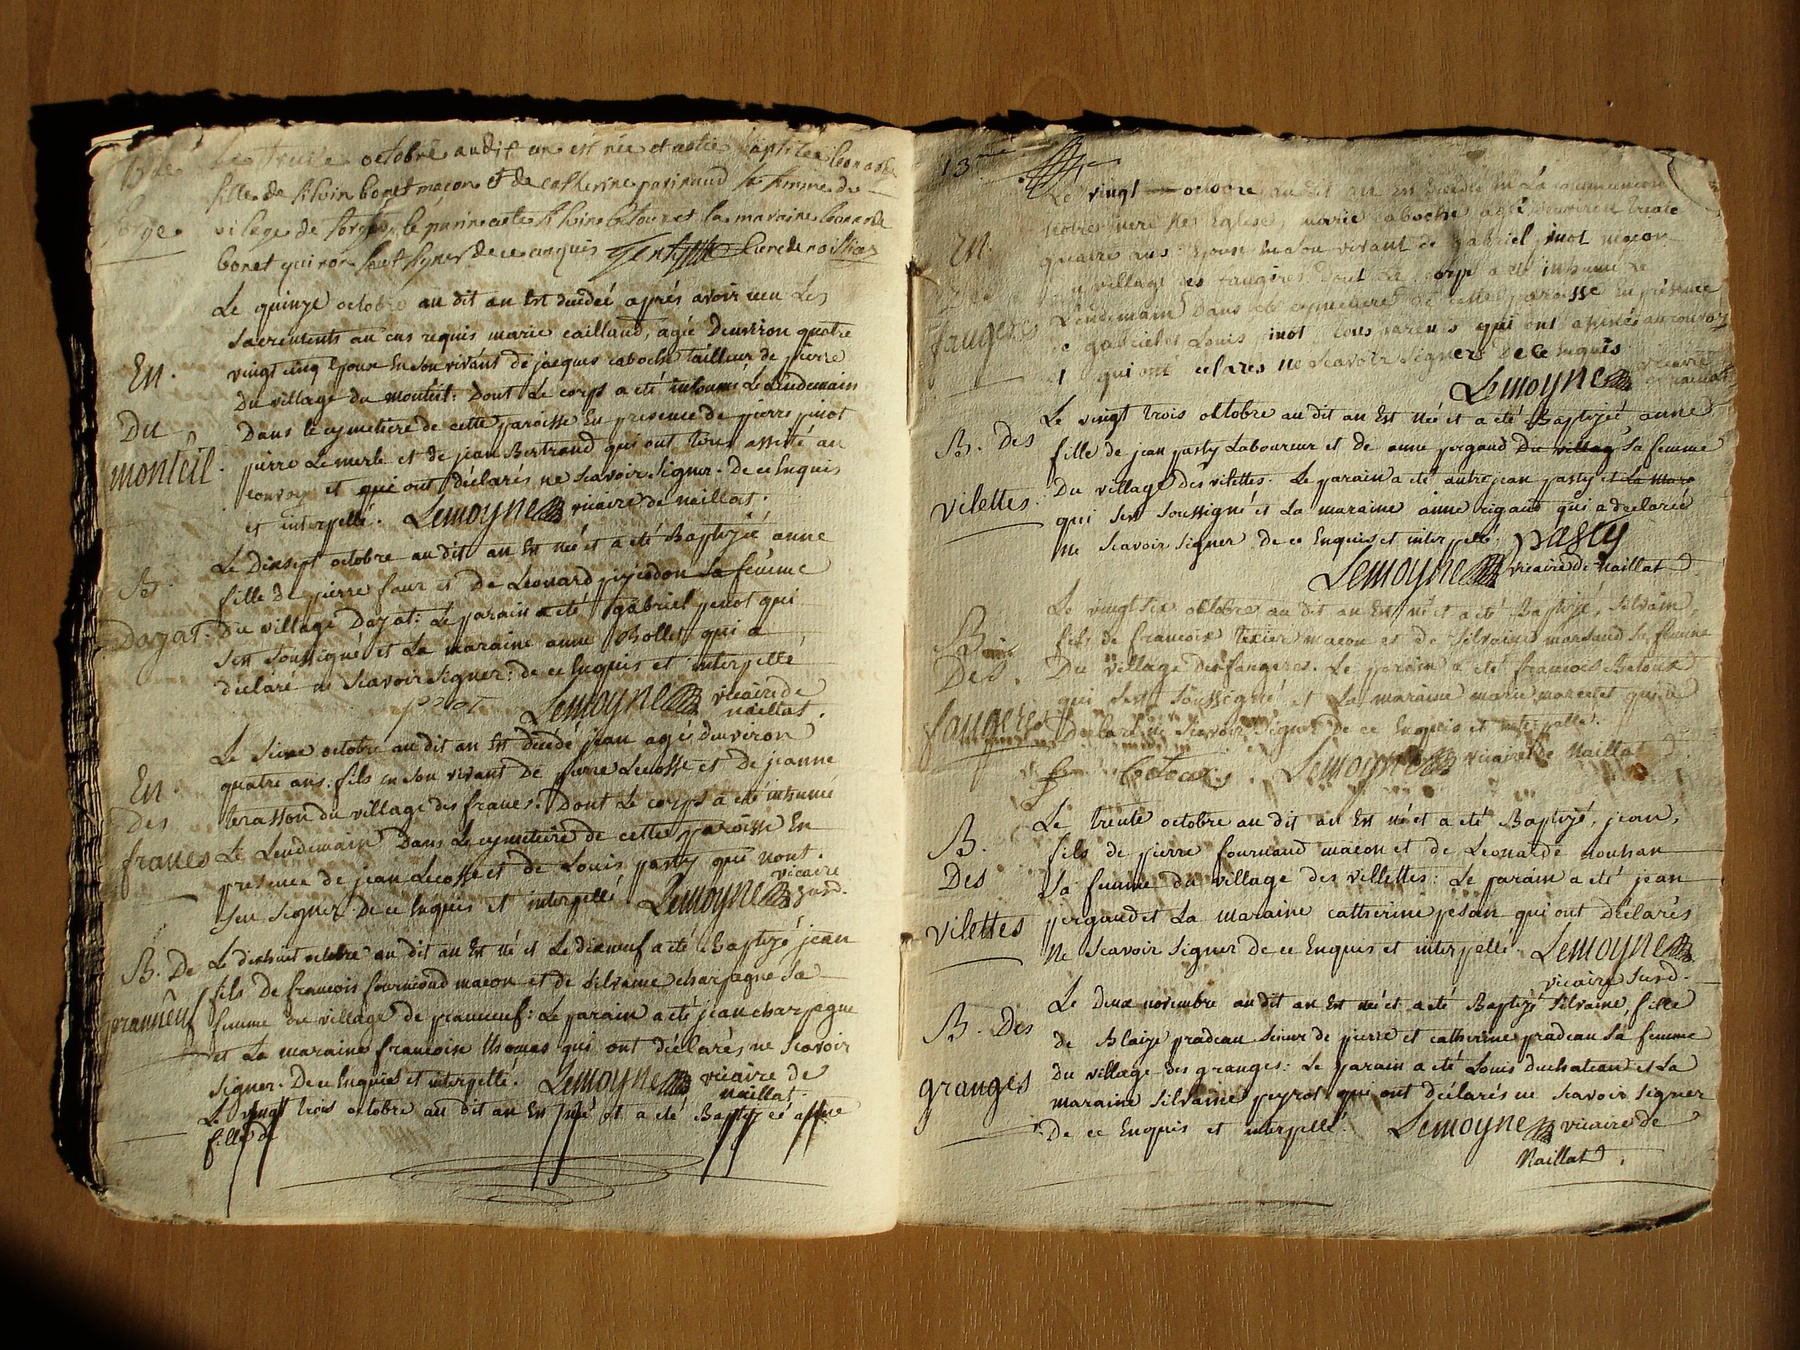 Le treize octobre audit an est née et a étée baptisée leonarde
fille de silvin bonet maçon et de catherine parinaud sa femme du
vilage de forges le parin a ete silvin et la maraine leonarde
bonet qui non signer de ce enquis curé de
Le quinze octobre au dit an Est décédéé aprés avoir reçu Les
Sacrements au cas requis marie caillaud, agée Denviron quatre
En.
vingt cinq Epouse En Son vivant de jacques caboche tailleur de pierre
Du village du monteil: Dont Le corps a eté inhumé Le Lendemain
Du
Dans le cymetiere de cette paroisse En presence de pierre pinot
monteil.
pierre Lemerle et de jean Bertrand qui ont tous assisté au
convoy et qui ont déclarés ne Scavoir Signer. De ce Enquis
et interpellé. Lemoyne vicaire de naillat.
Le Dixsept octobre au dit an Est née et a été Baptizéé anne
B.
fille de pierre faur et de Leonard Sa femme
Dazat. Du village Dazat: Le parain a eté gabriel penot qui
Sest Soussigné et La maraine anne Bollet qui a
déclaré ne Scavoir Signer: de ce Enquis et interpellé
Lemoyne vicaire de
naillat.
Le octobre au dit an Est décédé jean agée denviron
En.
quatre ans. fils en Son vivant de pierre Lecosse et de jeanne
Des
brasson du village des francs. Dont Le corps a eté inhumé
francs
Le Lendemain Dans Le cymetiere de cette paroisse En
presence de jean Lecosse et de Louis pasty qui nont.
Seu Signer De ce Enquis et interpellé Lemoyne vicaire
susd.
B. De
Le dixhuit octobre au dit an Est né et Le dixneuf a eté Baptizé jean
fils De francois fournioud macon et de Silvaine charpagne Sa
pranneuf
femme du village de pranneuf: Le parain a eté jean charpagne
et La maraine francoise thomas qui ont déclarés ne Scavoir
Signer. De ce Enquis et interpellé. Lemoyne vicaire de
naillat.
Le vingt trois octobre au dit an Est née et a eté Baptizéé anne
fille de
13me
Le vingt octobre au dit an Est décédé En La communion
notre mere Ste Eglise, marie caboche agée denviron trente
En.
quatre ans Epouse En Son vivant de gabriel pinot maçon
du village des faugeres Dont Le corps a eté inhumé Le
faugeres
Lendemain Dans le cymetiere de cette paroisse En présence
de gabriel et Louis pinot tous parents qui ont assistés au convoy
et qui ont déclarés ne Scavoir Signer De ce Enquis
Lemoyne vicaire
de naillat
Le vingt trois octobre au dit an Est née et a été Baptizéé anne
B. Des
fille de jean pasty Laboureur et de anne pergaud du village Sa femme
vilettes.
Du village des vilettes. Le parain a eté autre jean pasty et La mara
qui Sest Soussigné et La maraine anne rigaud qui a declarée
ne Scavoir Signer de ce Enquis et interpellé. pasty
Lemoyne vicaire de Naillat
Le vingt six octobre au dit an Est né et a eté Baptizé, Silvain,
B.
fils de francois texier macon et de Silvaine marsaud Sa femme
Des.
Du village des faugeres. Le parain a eté francois Betoux
faugeres
qui Sest Soussigné et La maraine marie marcelet qui a
Déclaré ne Scavoir Signer De ce Enquis et interpellé.
f betoux. Lemoyne vicaire de Naillat
Le trente octobre au dit an Est né et a eté Baptizé, jean,
B.
fils de pierre fournaud macon et de Leonarde nouhan
Des
Sa femme du village des villettes: Le parain a eté jean
vilettes
pergaud et La maraine catherine pesan qui ont déclarés
Ne Scavoir Signer de ce Enquis et interpellé. Lemoyne
vicaire Susd.
Le deux novembre au dit an Est née et a été Baptizé Silvaine, fille
B. Des
de Blaize pradeau Scieur de pierre et catherine pradeau Sa femme
granges
Du village des granges: Le parain a eté Louis duchateau et La
maraine Silvaine peyrot qui ont déclarés ne Scavoir Signer
De ce Enquis et interpellé. Lemoyne vicaire de
Naillat.